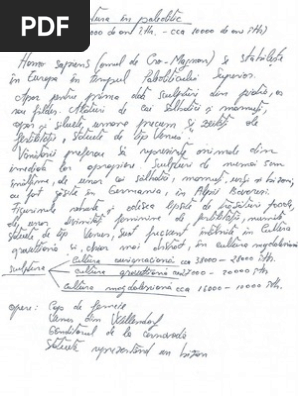 PDF
în paleolitic
000 de ani î.Hr. - cca 10000 de ani îHr)
Homo sapiens (omul de Cro-Magnon) se stabilește
în Europa în timpul Paleoliticului Superior.
Apar pentru prima dată sculpturi din piatră, os
sau fildeș. Alături de cai sălbatici și mamuți,
apar și siluete umane precum și zeități ale
fertilității, statuete de tip Venus.
Vânătorii preferau să reprezinte animale din
imediata lor apropiere sculpturi de numai 5cm
înălțime, de cai sălbatici, mamuți, urși și bizoni,
au fost găsite în Germania, în Alpii Bavarezi.
Figurinele adesea lipsite de trăsături faciale,
ale unei feminine de fertilitate, numite
statuete de tip Venus, sunt prezente în Cultura
gravetiană și, chiar mai târziu, în cultura magdaleniană
sculptura
cultura aurignaciană cca 35000 - 28000 îHr.
cultura gravetiană 27000 - 20000 îHr.
cultura magdaleniană cca 16000 - 10000 îHr.
opere: Cap de femeie
Venus din Willendorf
Statuetă reprezentând un bizon